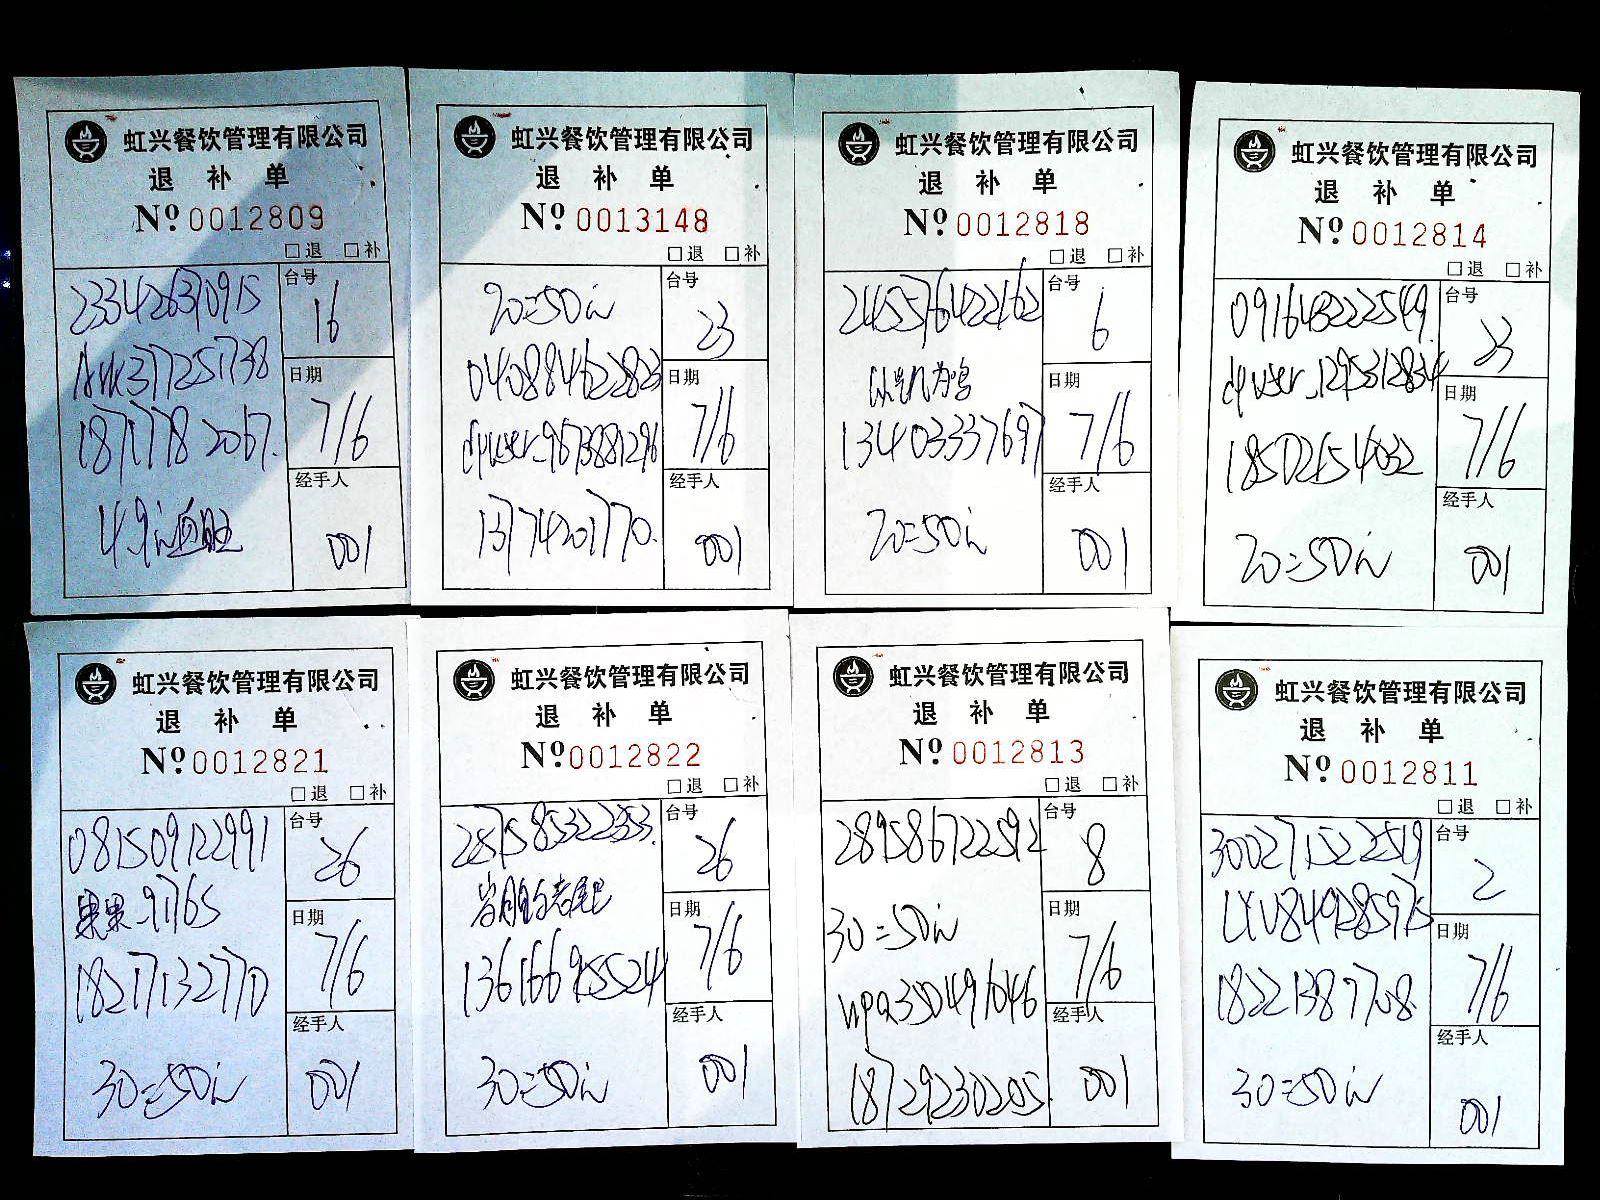 虹兴餐饮管理有限公司
退 补 单
Nº 0012809
□退 □补
233426370915
377251738
18717782067.
49
台号
16
日期
7/6
经手人
001
虹兴餐饮管理有限公司
退 补 单
Nº 0013148
□退 □补
20=50
040884622823
dyuser_9673881296
13174201770.
台号
23
日期
7/6
经手人
001
虹兴餐饮管理有限公司
退 补 单
Nº 0012818
□退 □补
245576422462
13403337697
20=50
台号
6
日期
7/6
经手人
001
虹兴餐饮管理有限公司
退 补 单
Nº 0012814
□退 □补
091643222549
dyuser_1295312834
18502154032
20=50
台号
23
日期
7/6
经手人
001
虹兴餐饮管理有限公司
退 补 单
Nº 0012821
□退 □补
081509122991
果果_9765
18217132770
30=50
台号
26
日期
7/6
经手人
001
虹兴餐饮管理有限公司
退 补 单
Nº 0012822
□退 □补
257585322353.
13616695524
30=50
台号
26
日期
7/6
经手人
001
虹兴餐饮管理有限公司
退 补 单
Nº 0012813
□退 □补
289586722592
30=50
wpa350491046
18729230205
台号
8
日期
7/6
经手人
001
虹兴餐饮管理有限公司
退 补 单
Nº 0012811
□退 □补
300271522519
LXV849285975
18221387708.
30=50
台号
2
日期
7/6
经手人
001